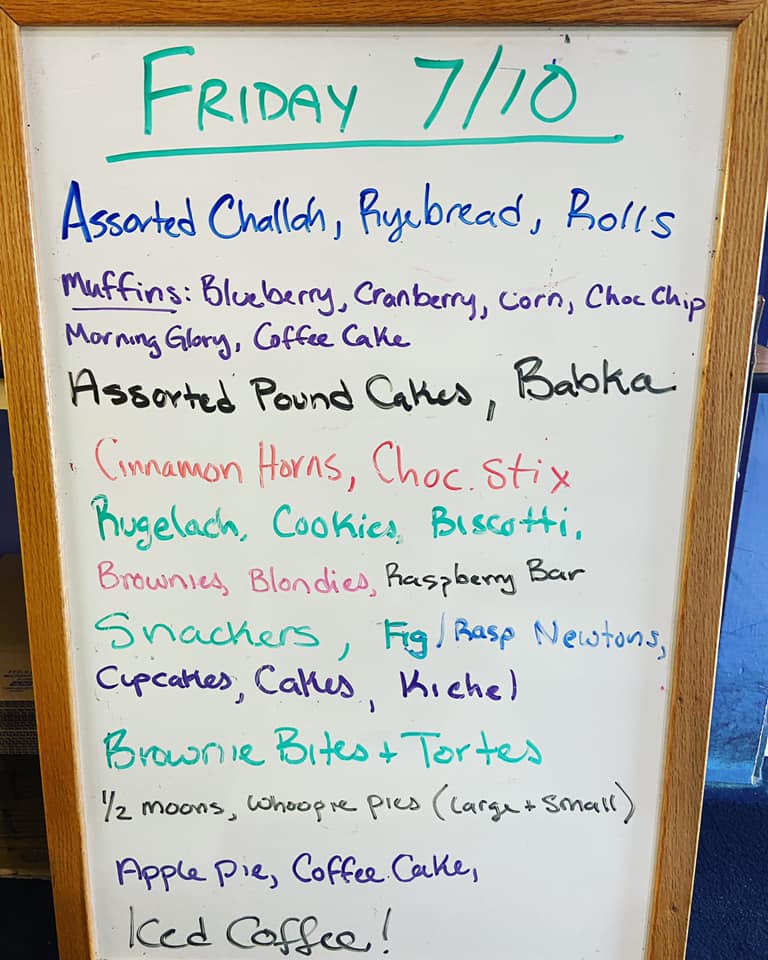 FRIDAY 7/10
Assorted Challah, Ryebread, Rolls
Muffins: Blueberry, Cranberry, Corn, Choc Chip
Morning Glory, Coffee Cake
Assorted Pound Cakes, Babka
Cinnamon Horns, Choc. Stix
Rugelach, Cookies, Biscotti,
Brownies, Blondies, Raspberry Bar
Snackers, Fig/Rasp Newtons,
Cupcakes, Cakes, Kichel
Brownie Bites + Tortes
1/2 moons, Whoopie pies (Large + Small)
Apple Pie, Coffee Cake,
Iced Coffee!